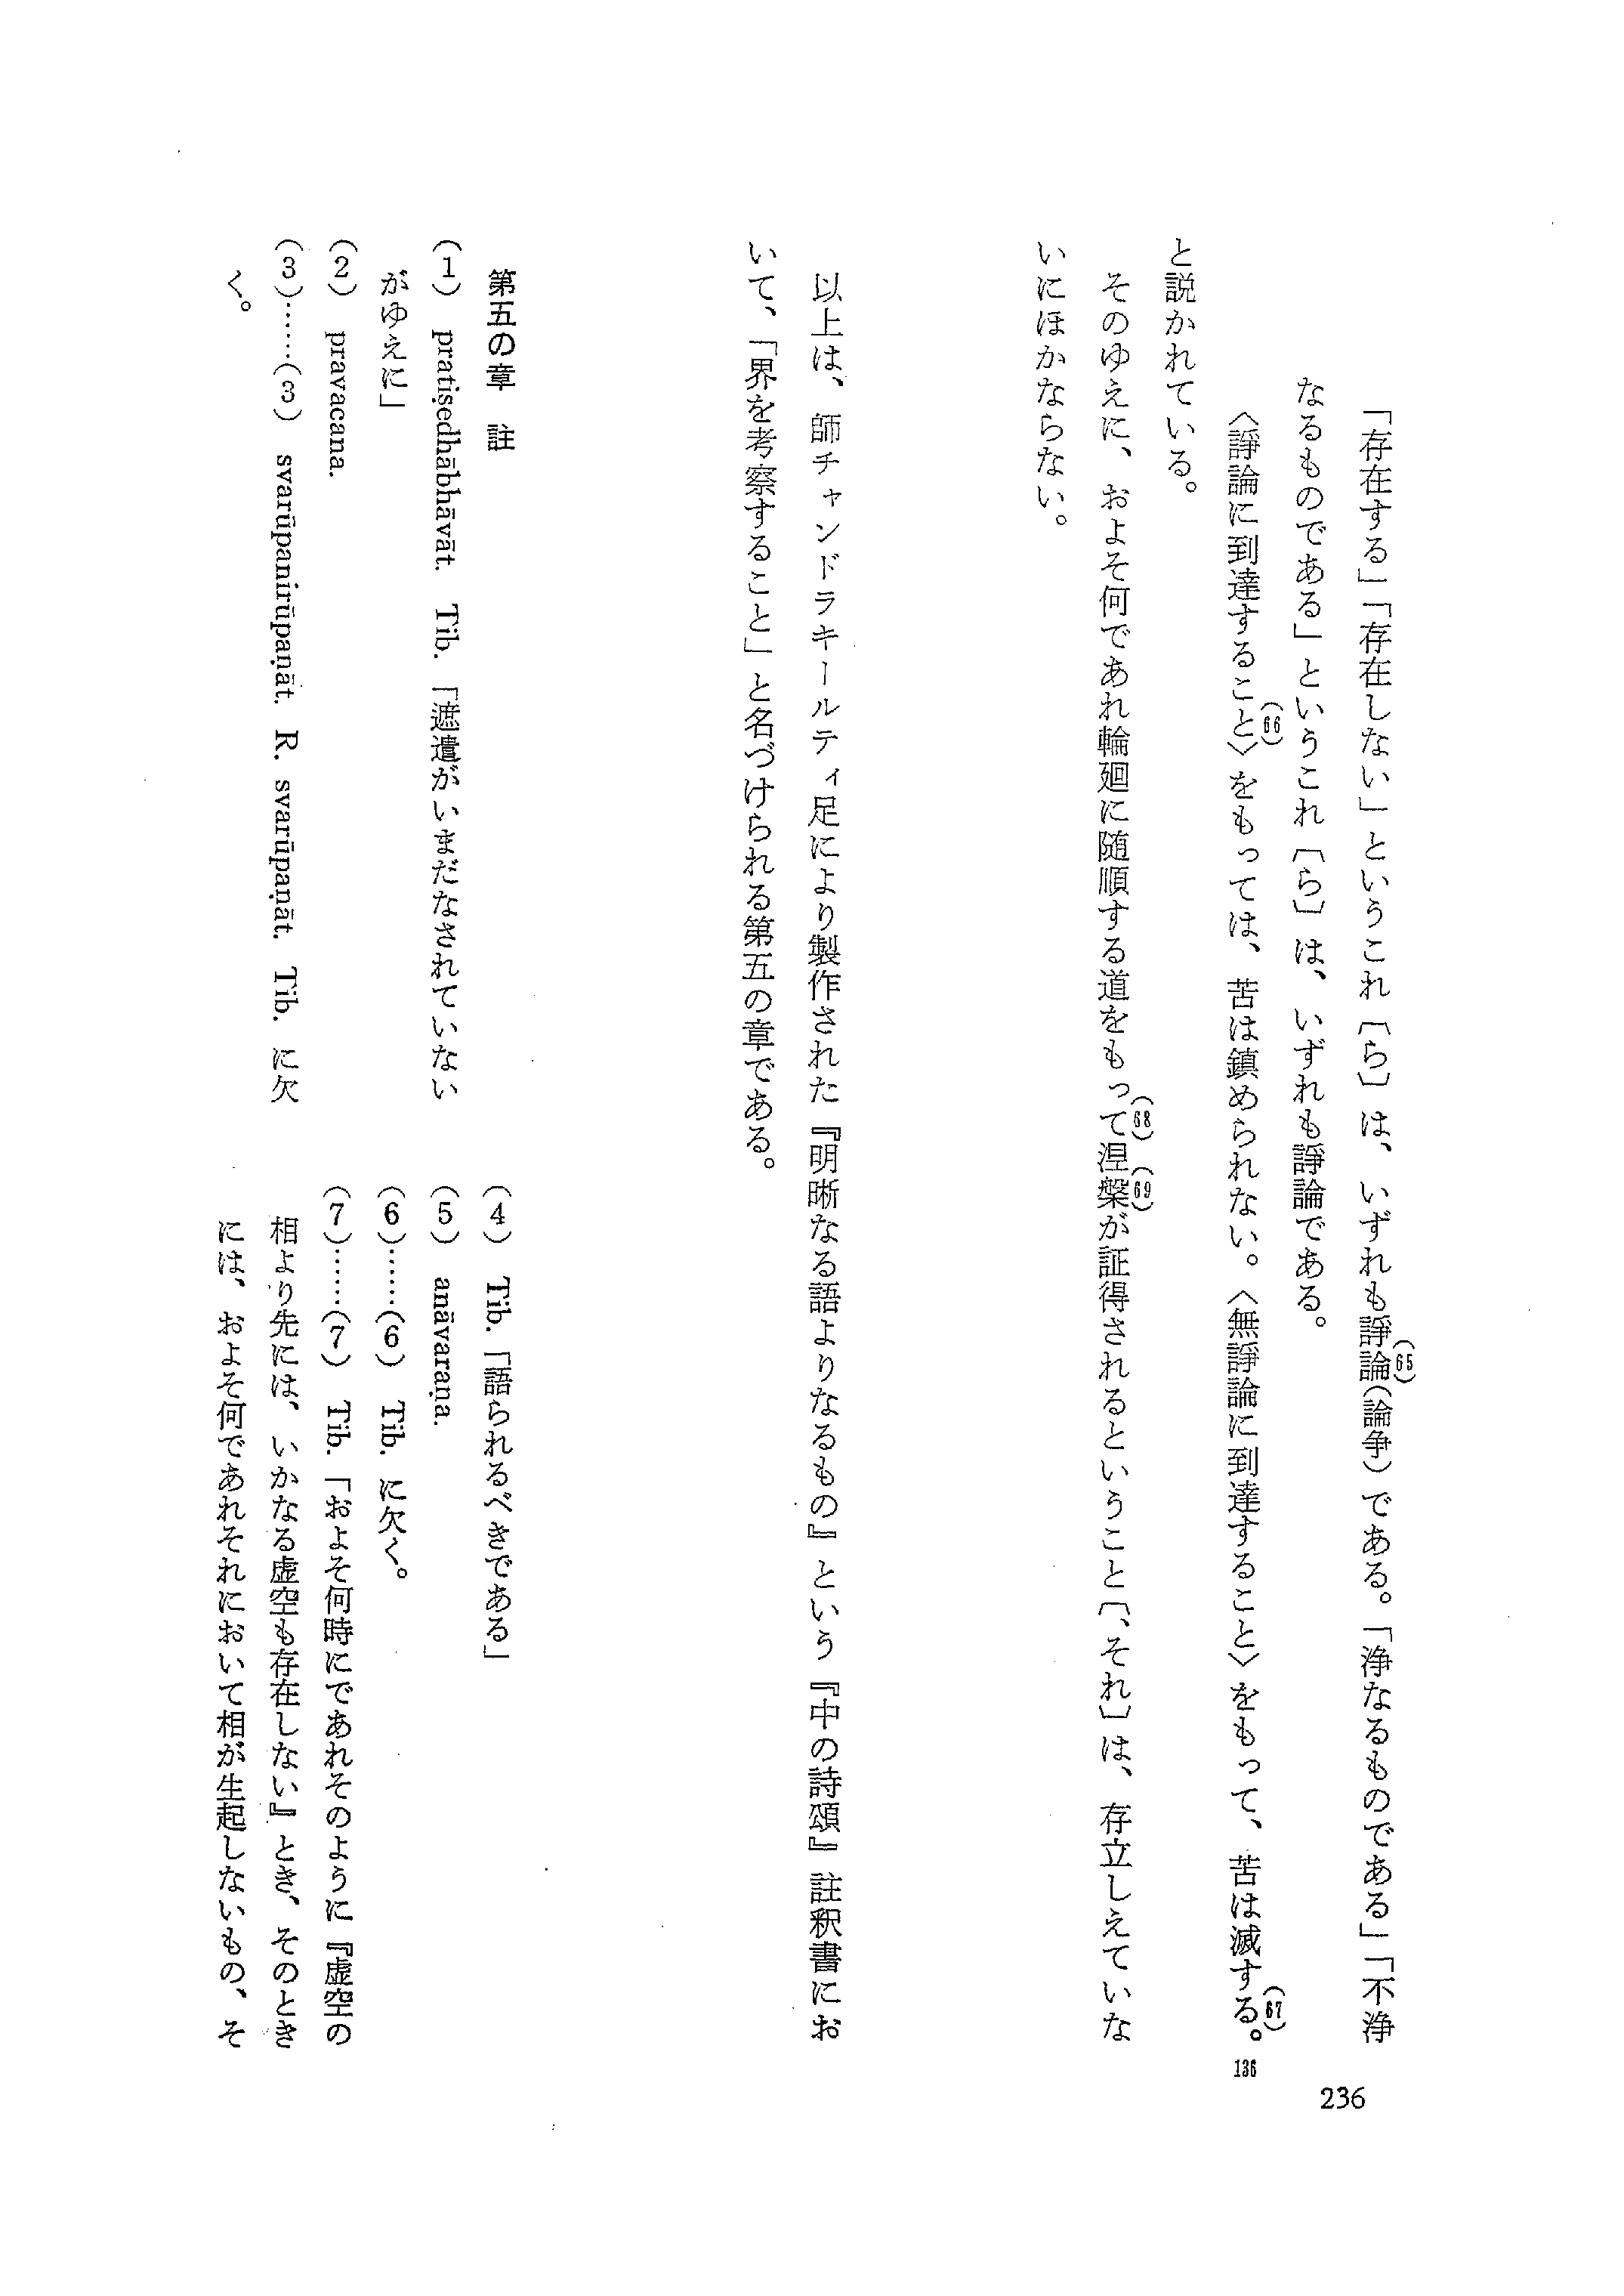 「存在する」「存在しない」というこれ〔ら〕は、いずれも諍論(65)(論争)である。「浄なるものである」「不浄
なるものである」というこれ〔ら〕は、いずれも諍論である。
〈諍論に到達すること(66)〉をもっては、苦は鎮められない。〈無諍論に到達すること〉をもって、苦は滅する。(67) 136
と説かれている。
そのゆえに、およそ何であれ輪廻に随順する道をもって(68)涅槃(69)が証得されるということ〔、それ〕は、存立しえていな
いにほかならない。
以上は、師チャンドラキールティ足により製作された『明晰なる語よりなるもの』という『中の詩頌』註釈書にお
いて、「界を考察すること」と名づけられる第五の章である。
第五の章 註
(1) pratiṣedhābhāvāt. Tib.「遮遣がいまだなされていない
がゆえに」
(2) pravacana.
(3)……(3) svarūpanirūpaṇāt. R. svarūpaṇāt. Tib. に欠
く。
(4) Tib.「語られるべきである」
(5) anāvaraṇa.
(6)……(6) Tib. に欠く。
(7)……(7) Tib.「およそ何時にであれそのように『虚空の
相より先には、いかなる虚空も存在しない』とき、そのとき
には、およそ何であれそれにおいて相が生起しないもの、そ
236